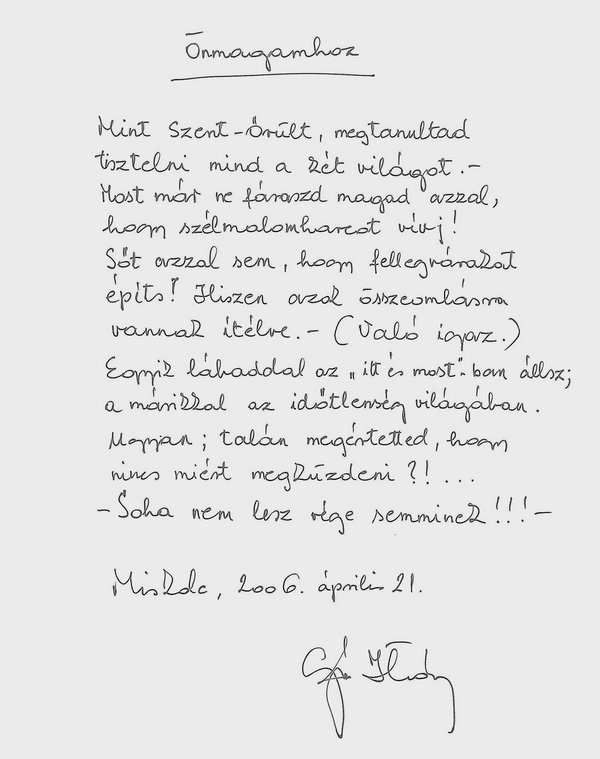 Önmagamhoz
Mint Szent-Őrült, megtanultad
tisztelni mind a két világot.-
Most már ne fáraszd magad azzal,
hogy szélmalomharcot vívj!
Sőt azzal sem, hogy fellegvárakat
építs! Hiszen azok összeomlásra
vannak ítélve.- (Való igaz.)
Egyik lábaddal az "itt és most"-ban állsz;
a másikkal az időtlenség világában.
Ugyan; talán megértetted, hogy
nincs miért megküzdeni?!...
-Soha nem lesz vége semminek!!!-
Miskolc, 2006. április 21.